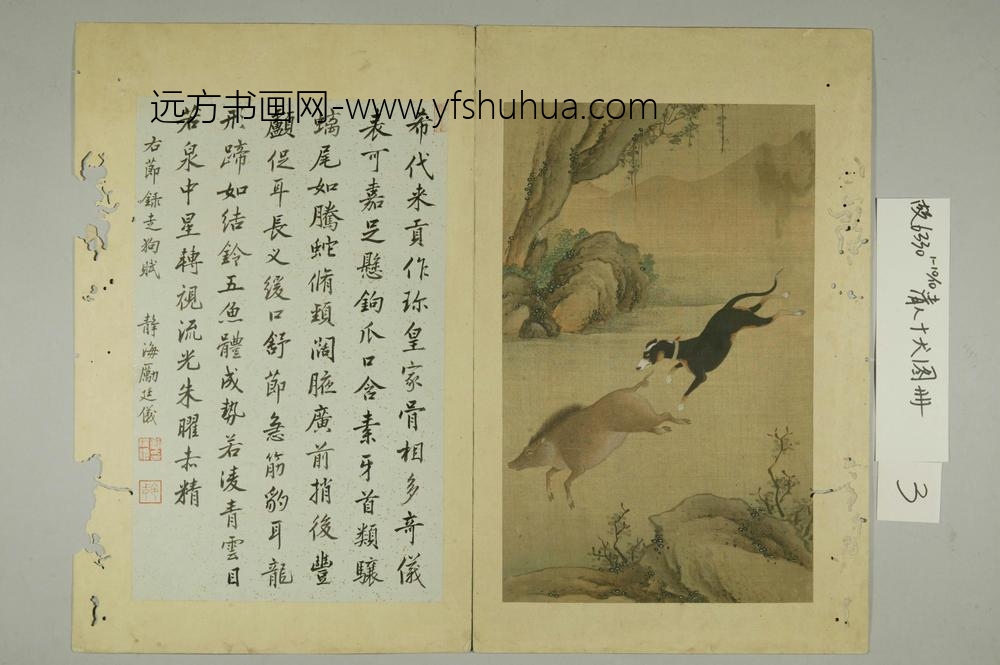 远方书画网-www.yfshuhua.com
希代来貢作珎皇家骨相多奇儀
表可嘉足懸鉤爪口含素牙首類驤
螭尾如騰蛇脩頸闊腋廣前捎後豐
顱促耳長叉緩口舒節急筋豹耳龍
形蹄如結鈴五魚體成勢若凌青雲目
若泉中星轉視流光朱曜赤精
右節録走狗賦
靜海勵廷儀
6330
1-10/10
清人十犬图册
3